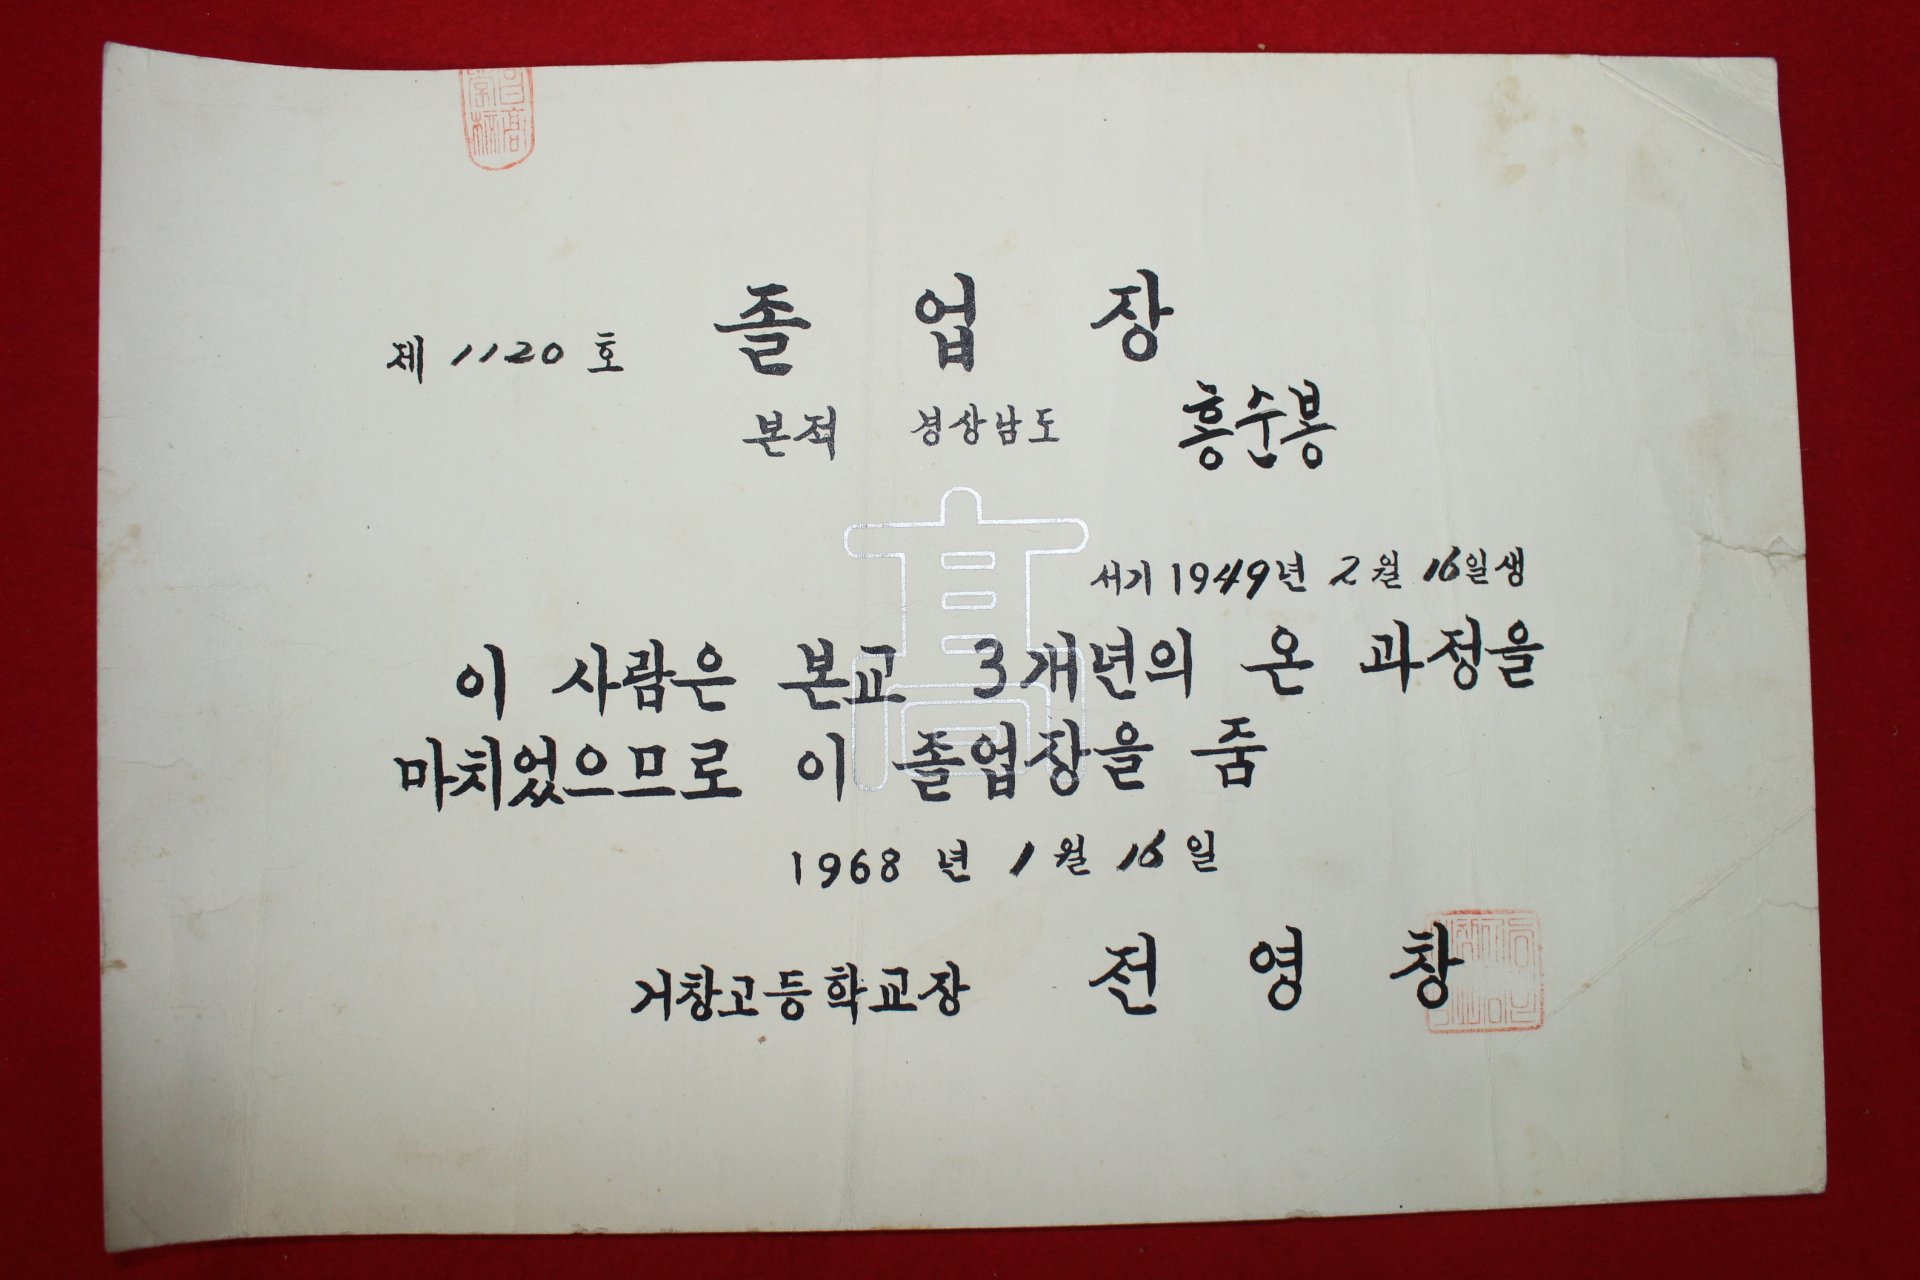 제 1120 호
졸 업 장
본적 경상남도 홍순봉
서기 1949년 2월 16일생
이 사람은 본교 3개년의 온 과정을
마치었으므로 이 졸업장을 줌
1968 년 1 월 16 일
거창고등학교장 전 영 창
高